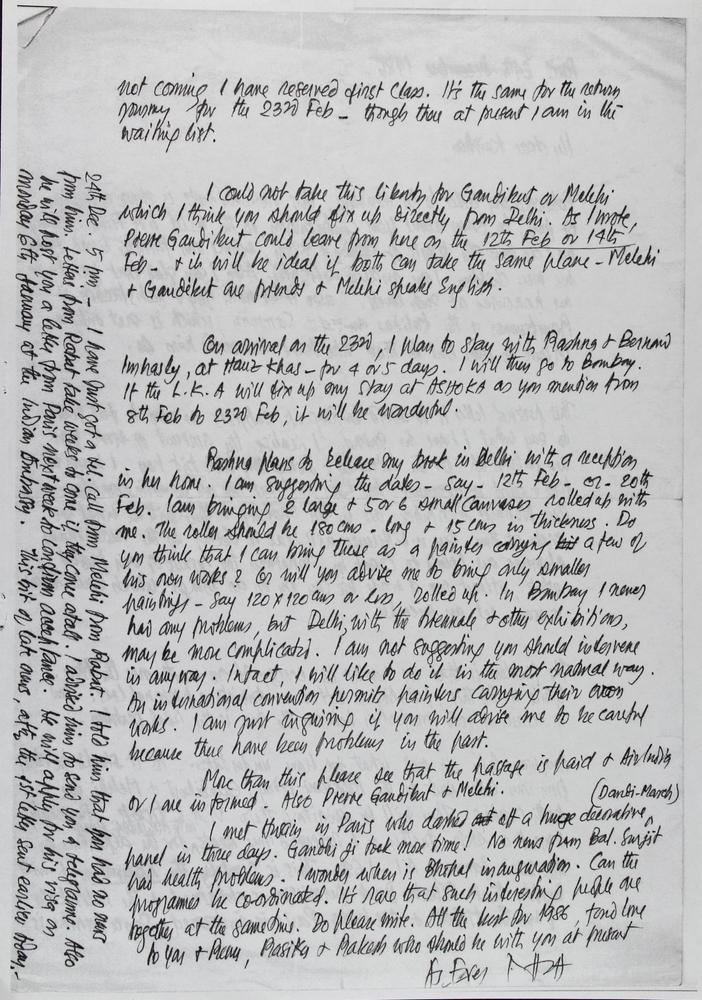 not coming I have reserved first class. It's the same for the return
journey for the 23rd Feb – though there at present I am in the
waiting list.
I could not take this liberty for Gaudibert or Melehi
which I think you should fix up directly from Delhi. As I wrote,
Pierre Gaudibert could leave from here on the 12th Feb or 14th
Feb – & it will be ideal if both can take the same plane – Melehi
& Gaudibert are friends & Melehi speaks English.
On arrival on the 23rd, I plan to stay with Rashna & Bernard
Imhasly, at Hauz Khas – for 4 or 5 days. I will then go to Bombay.
If the L.K.A will fix up my stay at ASHOKA as you mention from
8th Feb to 23rd Feb, it will be wonderful.
Rashna plans to release my book in Delhi with a reception
in her home. I am suggesting the dates – say – 12th Feb – or – 20th
Feb. I am bringing 2 large & 5 or 6 small canvases rolled up with
me. The roller should be 180 cms – long & 15 cms in thickness. Do
you think that I can bring these as a painter carrying a few of
his own works? Or will you advise me to bring only smaller
paintings – say 120 x 120 cms or less, rolled up. In Bombay I never
had any problems, but Delhi, with the Triennale & other exhibitions,
may be more complicated. I am not suggesting you should intervene
in anyway. Infact, I will like to do it in the most normal way.
An international convention permits painters carrying their own
works. I am just inquiring if you will advise me to be careful
because there have been problems in the past.
More than this please see that the passage is paid & Air India
or I are informed. Also Pierre Gaudibert & Melehi.
(Dandi-March)
I met Husain in Paris who dashed off a huge decorative
panel in three days. Gandhi ji took more time! No news from Bal. Surjit
had health problems. I wonder when is Bhopal inauguration. Can the
programmes be co-ordinated. It's rare that such interesting people are
together at the sametime. Do please write. All the best for 1986, fond love
to you & Renu, Rasika & Prakash who should be with you at present
As Ever RAZA
24th Dec. 5 pm – I have just got a tel. call from Melehi from Rabat. I told him that you had no news
from him. Letters from Rabat take weeks to come if they come atall. I advised him to send you a telegramme. Also
he will post you a letter from Paris next week to confirm acceptance. He will apply for his visa on
monday 6th January at the Indian Embassy. This bit of late news, after the 1st letter sent earlier today. –